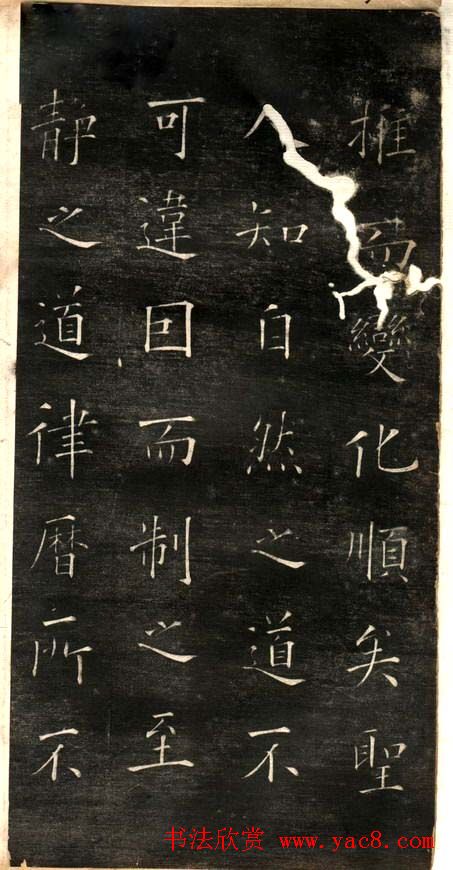 推而變化順矣聖
人知自然之道不
可違囙而制之至
靜之道律曆所不
书法欣赏 www.yac8.com